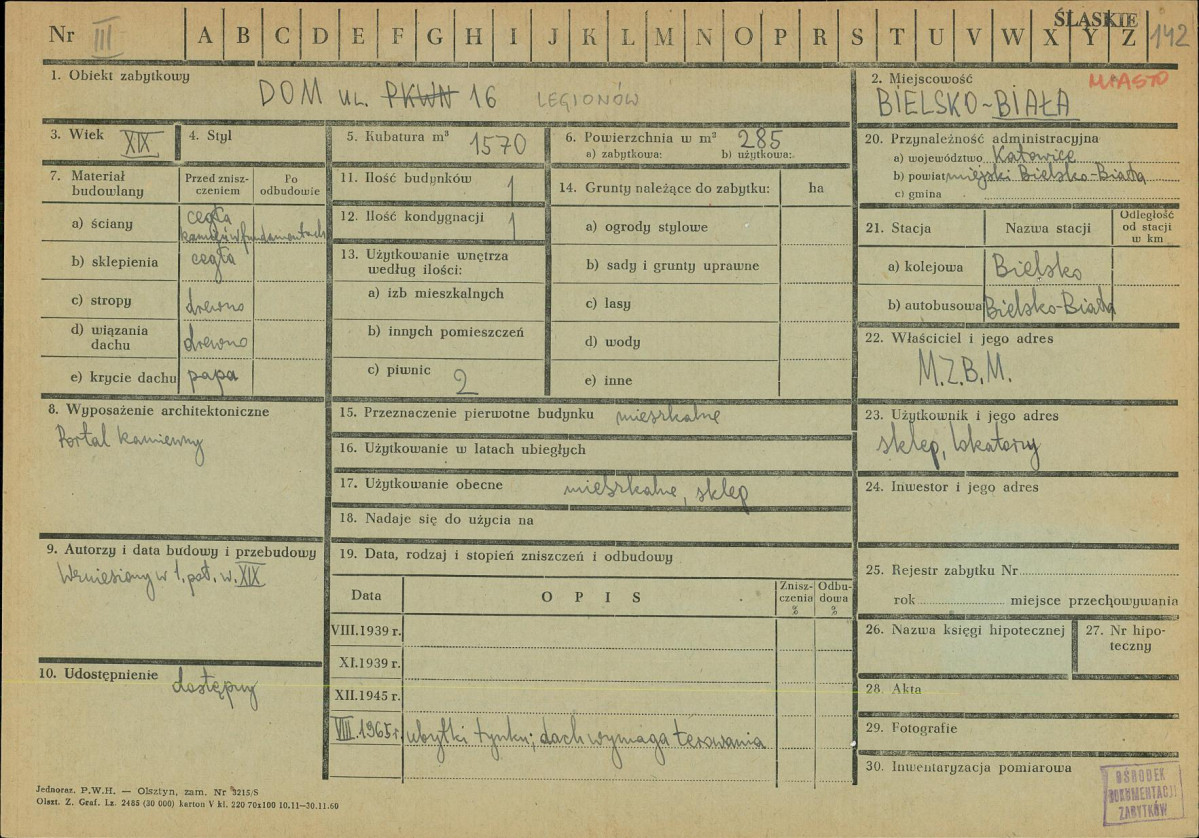 Nr III A B C D E F G H I J K L M N O P R S T U V W X Y Z ŚLĄSKIE 142
1. Obiekt zabytkowy
DOM UL. PKWN 16 LEGIONÓW
2. Miejscowość MIASTO
BIELSKO-BIAŁA
3. Wiek XIX
4. Styl
5. Kubatura m³ 1570
6. Powierzchnia w m² 285
a) zabytkowa: b) użytkowa:
20. Przynależność administracyjna
a) województwo Katowice
b) powiat miejski Bielsko-Biała
c) gmina
7. Materiał budowlany
Przed zniszczeniem
Po odbudowie
a) ściany cegła
kamień w fundamentach
b) sklepienia cegła
c) stropy drewno
d) wiązania dachu drewno
e) krycie dachu papa
11. Ilość budynków 1
12. Ilość kondygnacji 1
13. Użytkowanie wnętrza
według ilości:
a) izb mieszkalnych
b) innych pomieszczeń
c) piwnic 2
14. Grunty należące do zabytku: ha
a) ogrody stylowe
b) sady i grunty uprawne
c) lasy
d) wody
e) inne
21. Stacja
Nazwa stacji
Odległość
od stacji
w km
a) kolejowa Bielsko
b) autobusowa Bielsko-Biała
22. Właściciel i jego adres
M.Z.B.M.
8. Wyposażenie architektoniczne
Portal kamienny
15. Przeznaczenie pierwotne budynku mieszkalne
16. Użytkowanie w latach ubiegłych
17. Użytkowanie obecne mieszkalne, sklep
18. Nadaje się do użycia na
23. Użytkownik i jego adres
sklep, lokatorzy
24. Inwestor i jego adres
9. Autorzy i data budowy i przebudowy
Wzniesiony w 1. poł. w. XIX
19. Data, rodzaj i stopień zniszczeń i odbudowy
Data
OPIS
Zniszczenia %
Odbudowa %
VIII.1939 r.
XI.1939 r.
XII.1945 r.
VIII.1965 r. ubytki tynku; dach wymaga terowania
25. Rejestr zabytku Nr
rok miejsce przechowywania
26. Nazwa księgi hipotecznej
27. Nr hipoteczny
10. Udostępnienie dostępny
28. Akta
29. Fotografie
30. Inwentaryzacja pomiarowa
OŚRODEK
DOKUMENTACJI
ZABYTKÓW
Jednoraz. P.W.H. — Olsztyn, zam. Nr 3215/S
Olszt. Z. Graf. Lz. 2485 (30 000) karton V kl. 220 70x100 10.11—30.11.60